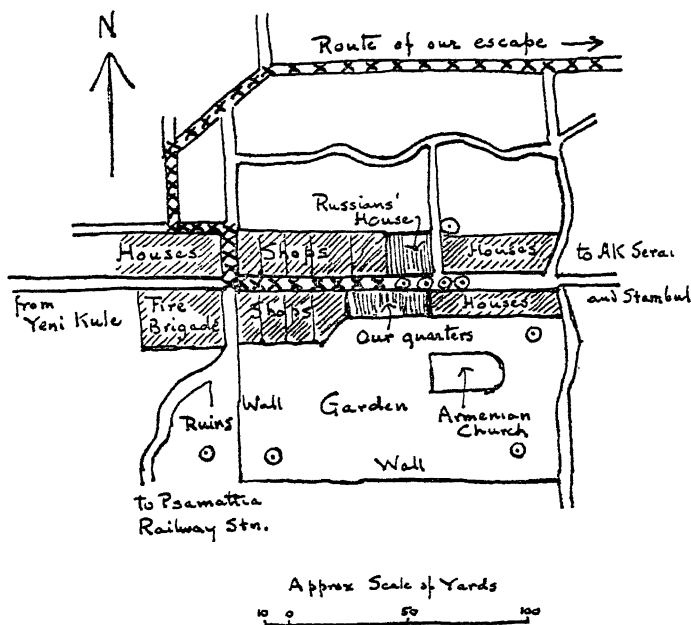 N
Route of our escape
Russians'
House
Houses
Shops
Houses
to AK Serai
from
Yeni Kule
Fire
Brigade
Shops
Houses
and Stambul
Our quarters
Wall
Garden
Ruins
Armenian
Church
Wall
to Psamattia
Railway Stn.
Approx Scale of Yards
10 0 50 100